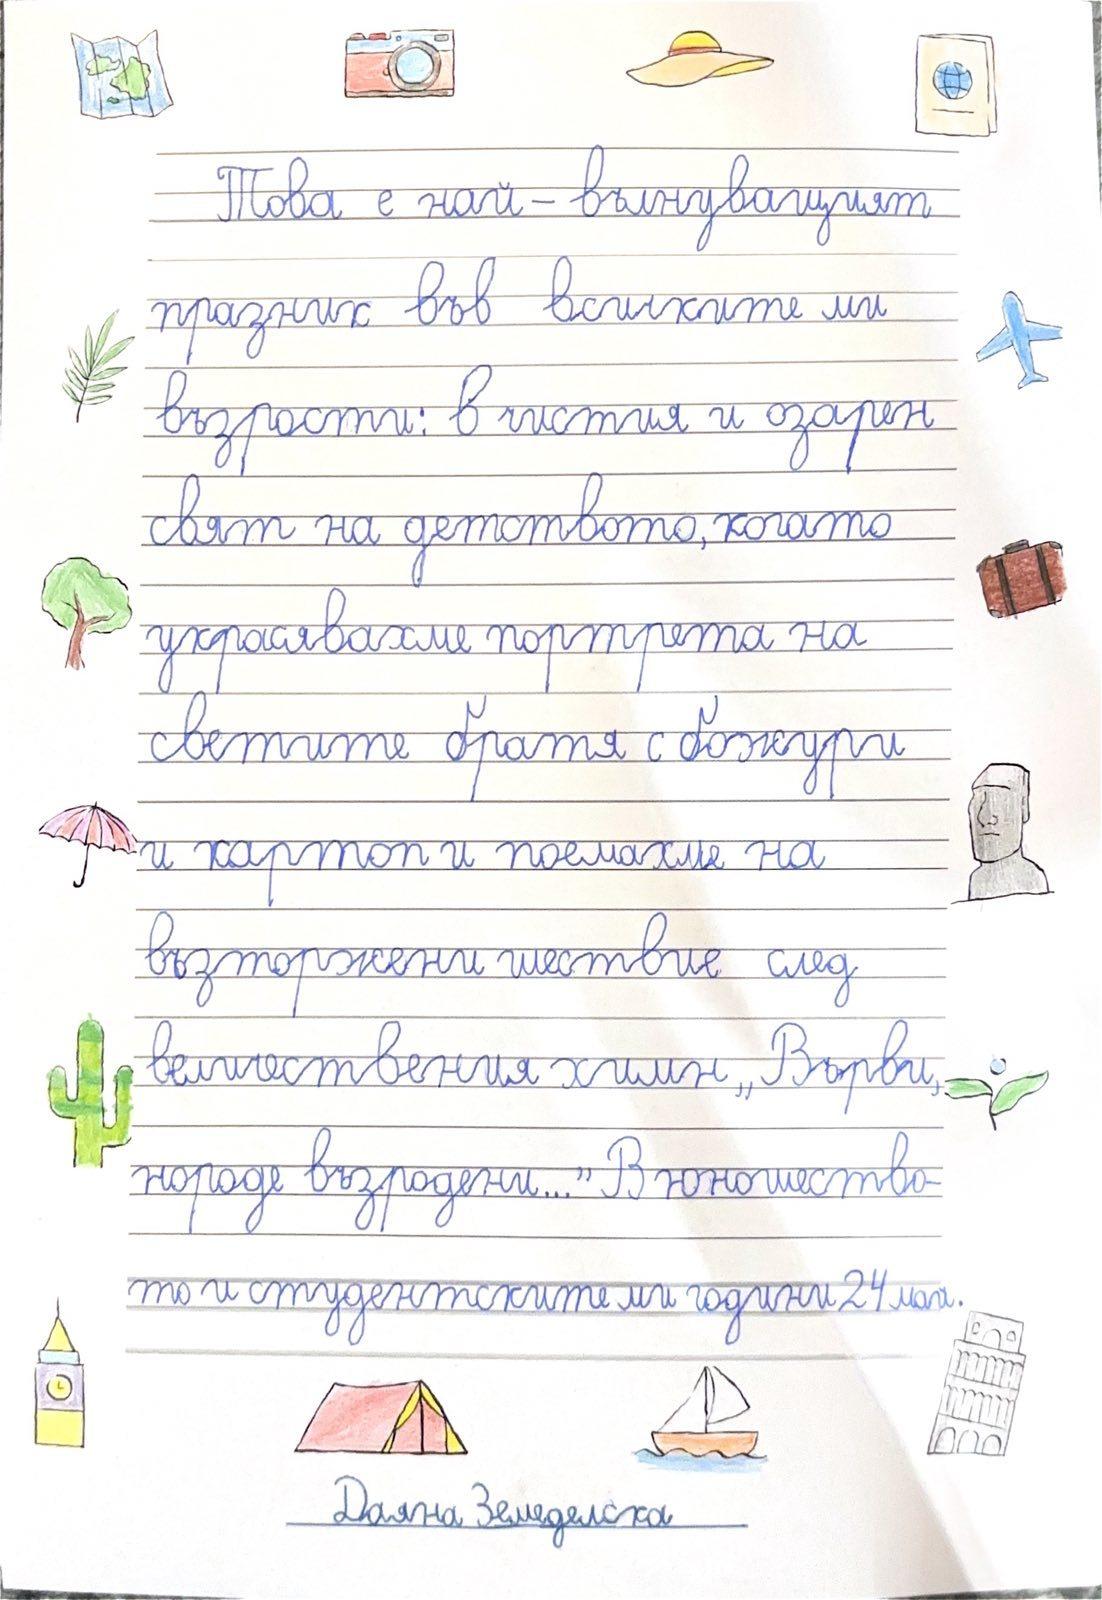 Това е най-вълнуващият
празник във всичките ми
възрасти: в чистия и озарен
свят на детството, когато
украсявахме портрета на
светите братя с божури
и картоп и поемахме на
възторжени шествие след
величествения химн „Върви,
народе възродени..." В юношество-
то и студентските ми години 24 май.
Даяна Земеделска